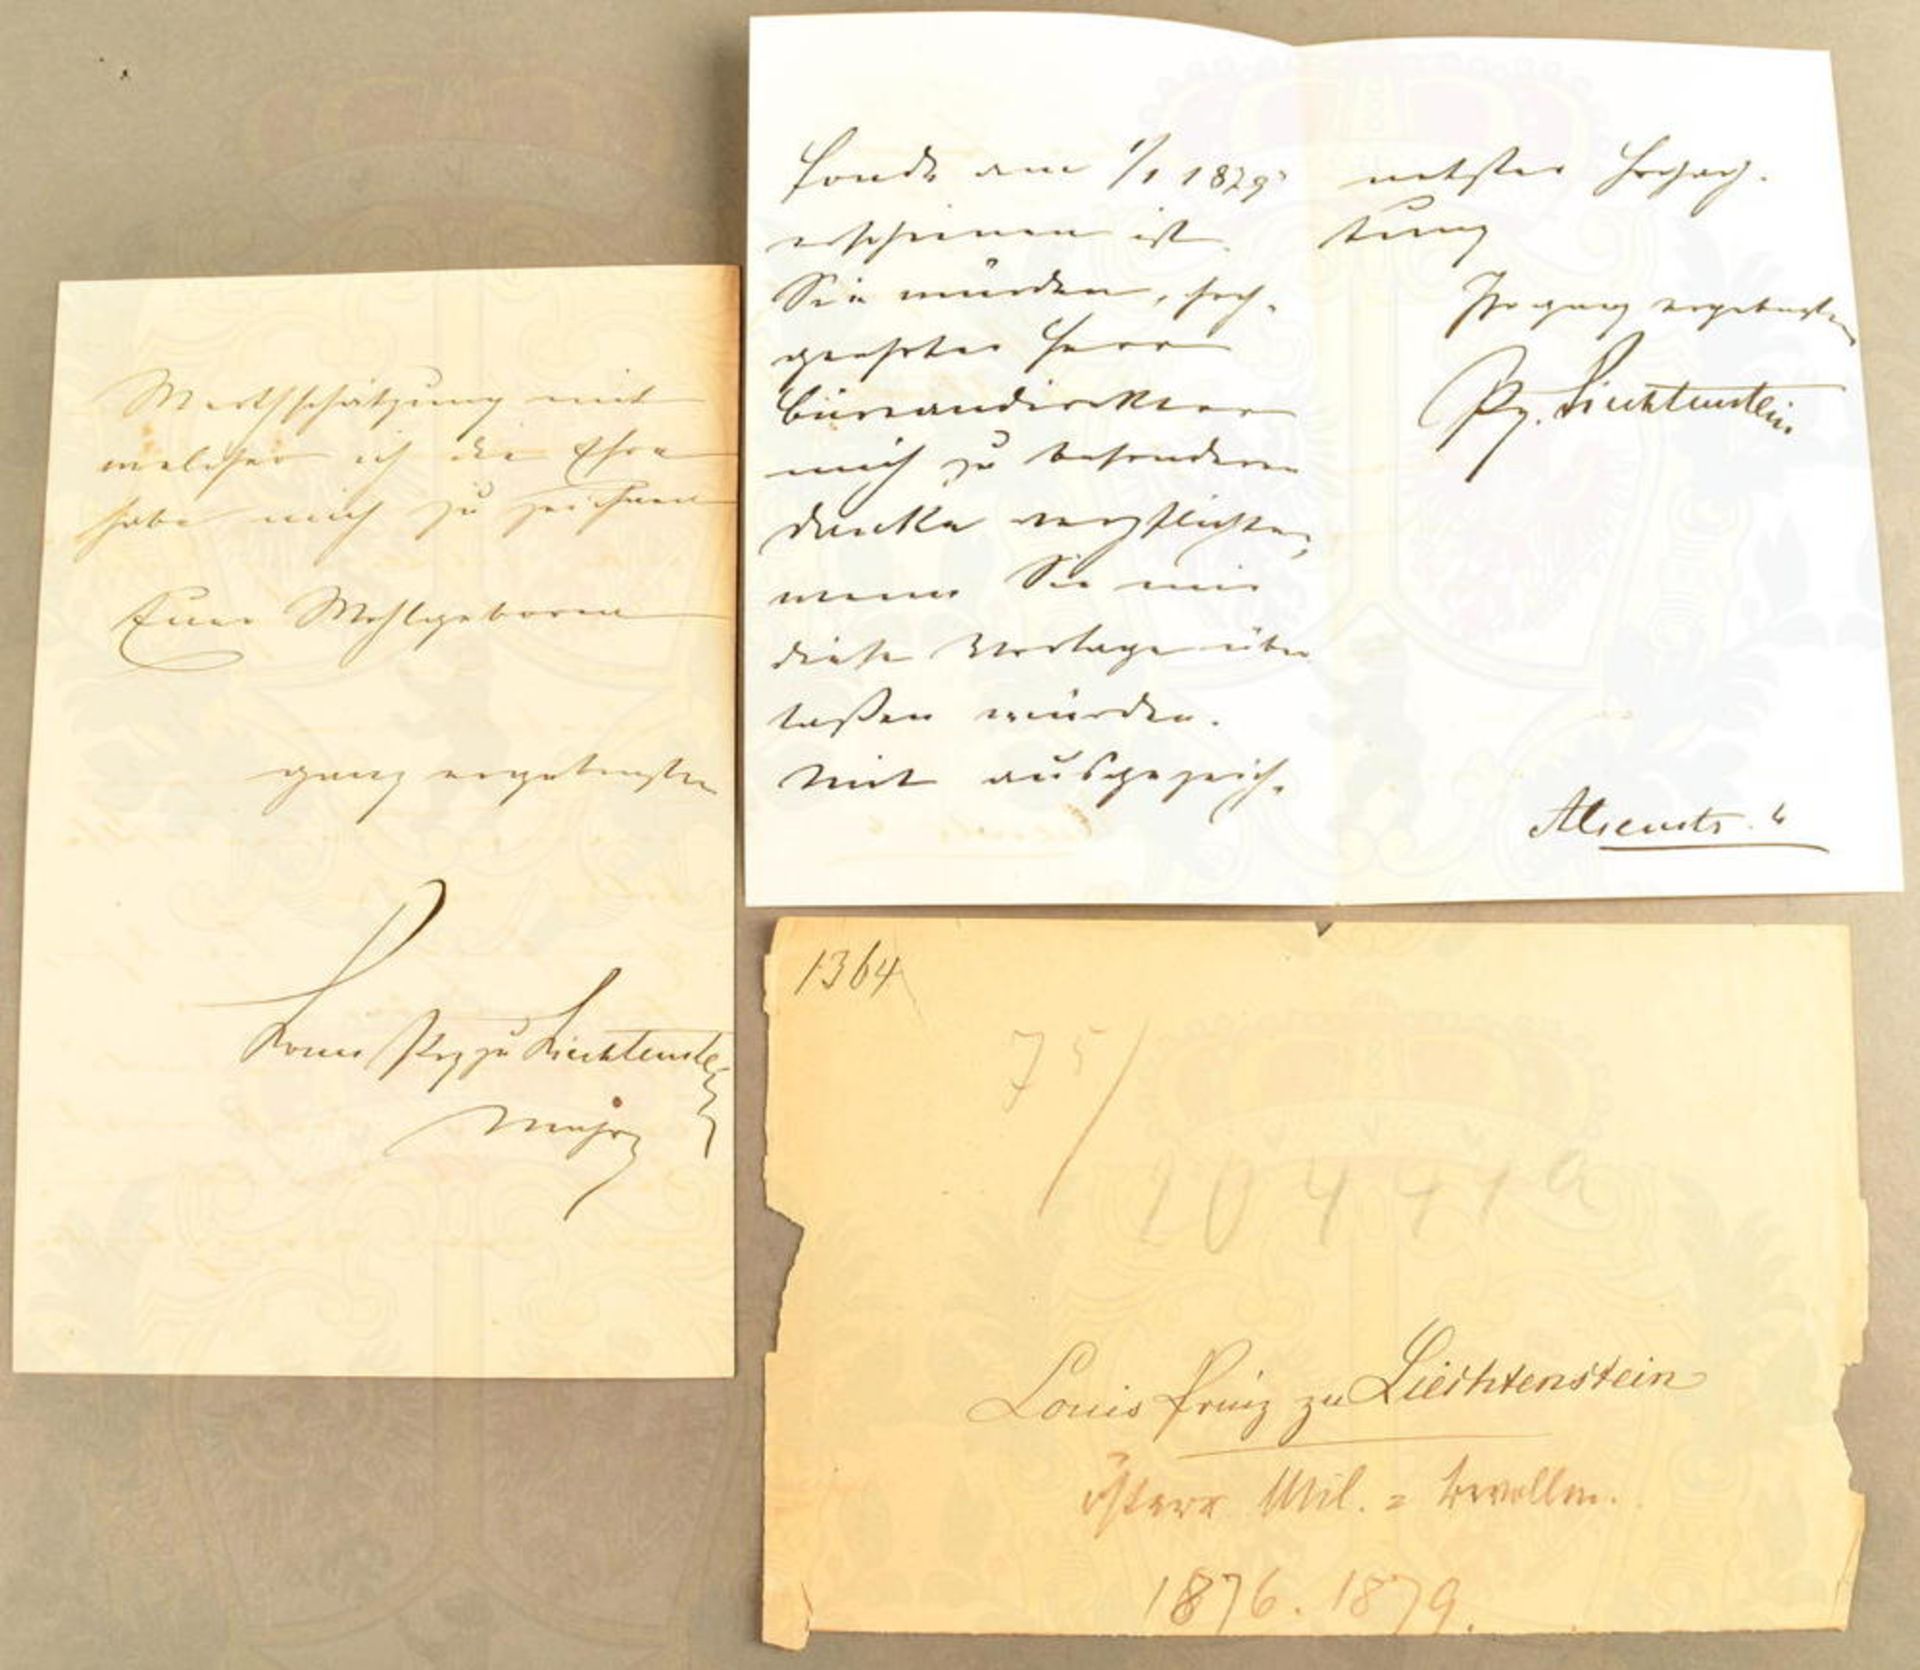 Werthschätzung mit
welcher ich die Ehre
habe mich zu zeichnen
Euer Wohlgeboren
ganz ergebenster
Louis Prz zu Liechtenstein
Major
fonds am 1/1 1879
erschienen ist.
Sie würden, hoch-
geehrter Herr
Büreaudirektor
mich zu besonderem
Danke verpflichten,
wenn Sie mir
diese Vorlage über
laßen würden.
Mit ausgezeich-
netster Hochach-
tung
Ihr ganz ergebenster
Prz. Liechtenstein.
Alsenstr. 4
1364
75/
10441a
Louis Prinz zu Liechtenstein
österr Mil. = bevollm.
1876. 1879.